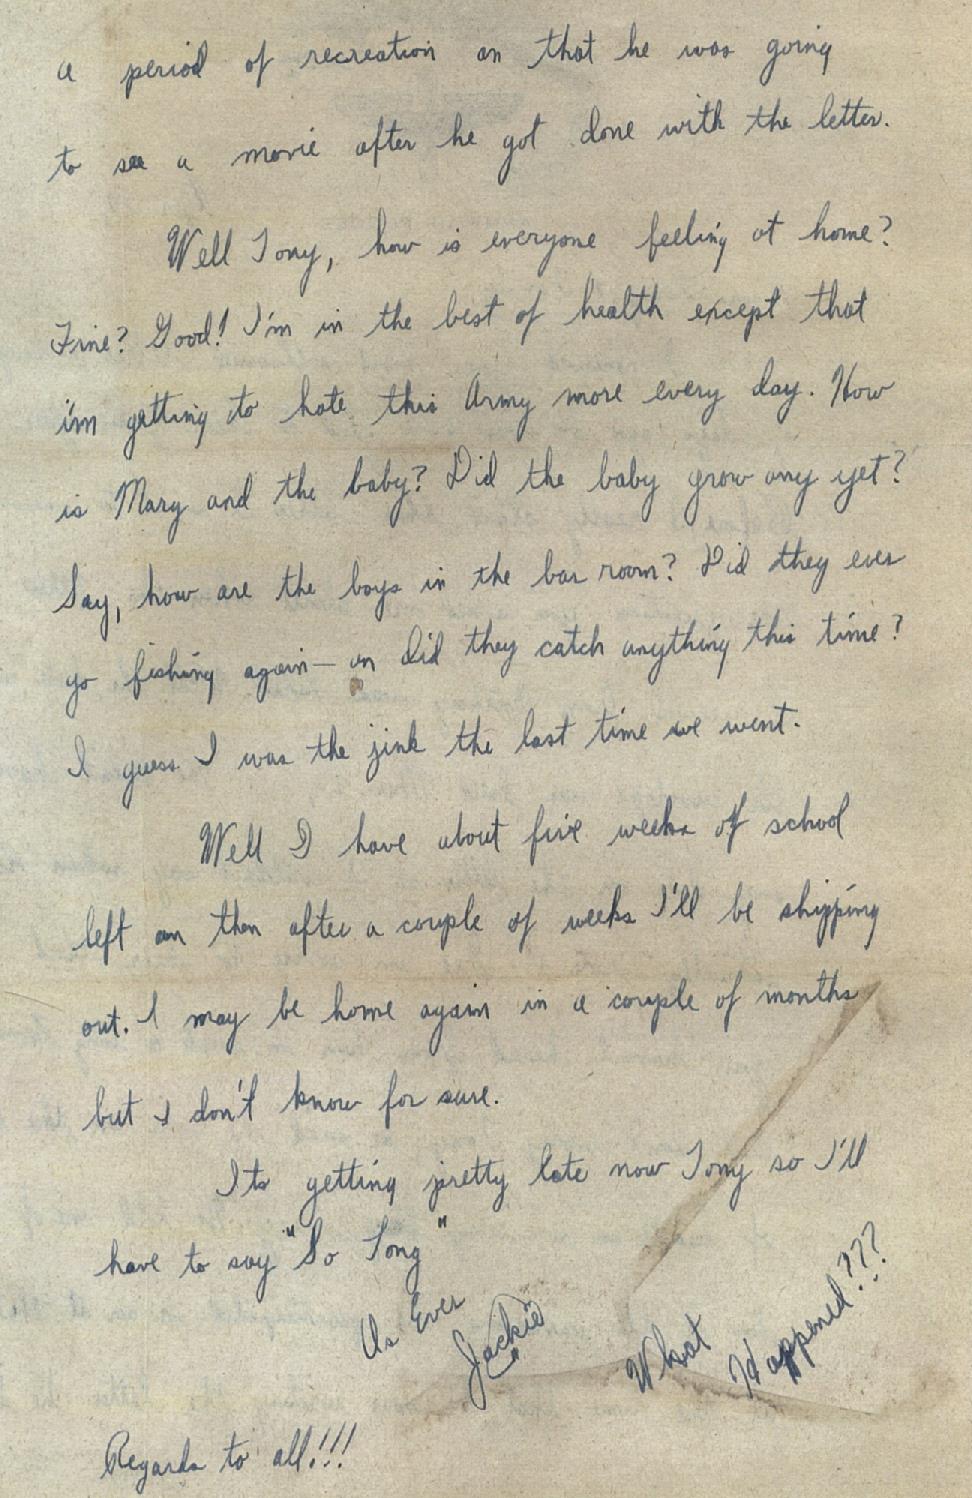 a period of recreation an that he was going
to see a movie after he got done with the letter.
Well Tony, how is everyone feeling at home?
Fine? Good! I'm in the best of health except that
i'm getting to hate this Army more every day. How
is Mary and the baby? Did the baby grow any yet?
Say, how are the boys in the bar room? Did they ever
go fishing again — an did they catch anything this time?
I guess I was the jink the last time we went.
Well I have about five weeks of school
left an then after a couple of weeks I'll be shipping
out. I may be home again in a couple of months
but I don't know for sure.
Its getting pretty late now Tony so I'll
have to say "So Long"
As Ever
Jackie
What Happened???
Regards to all!!!